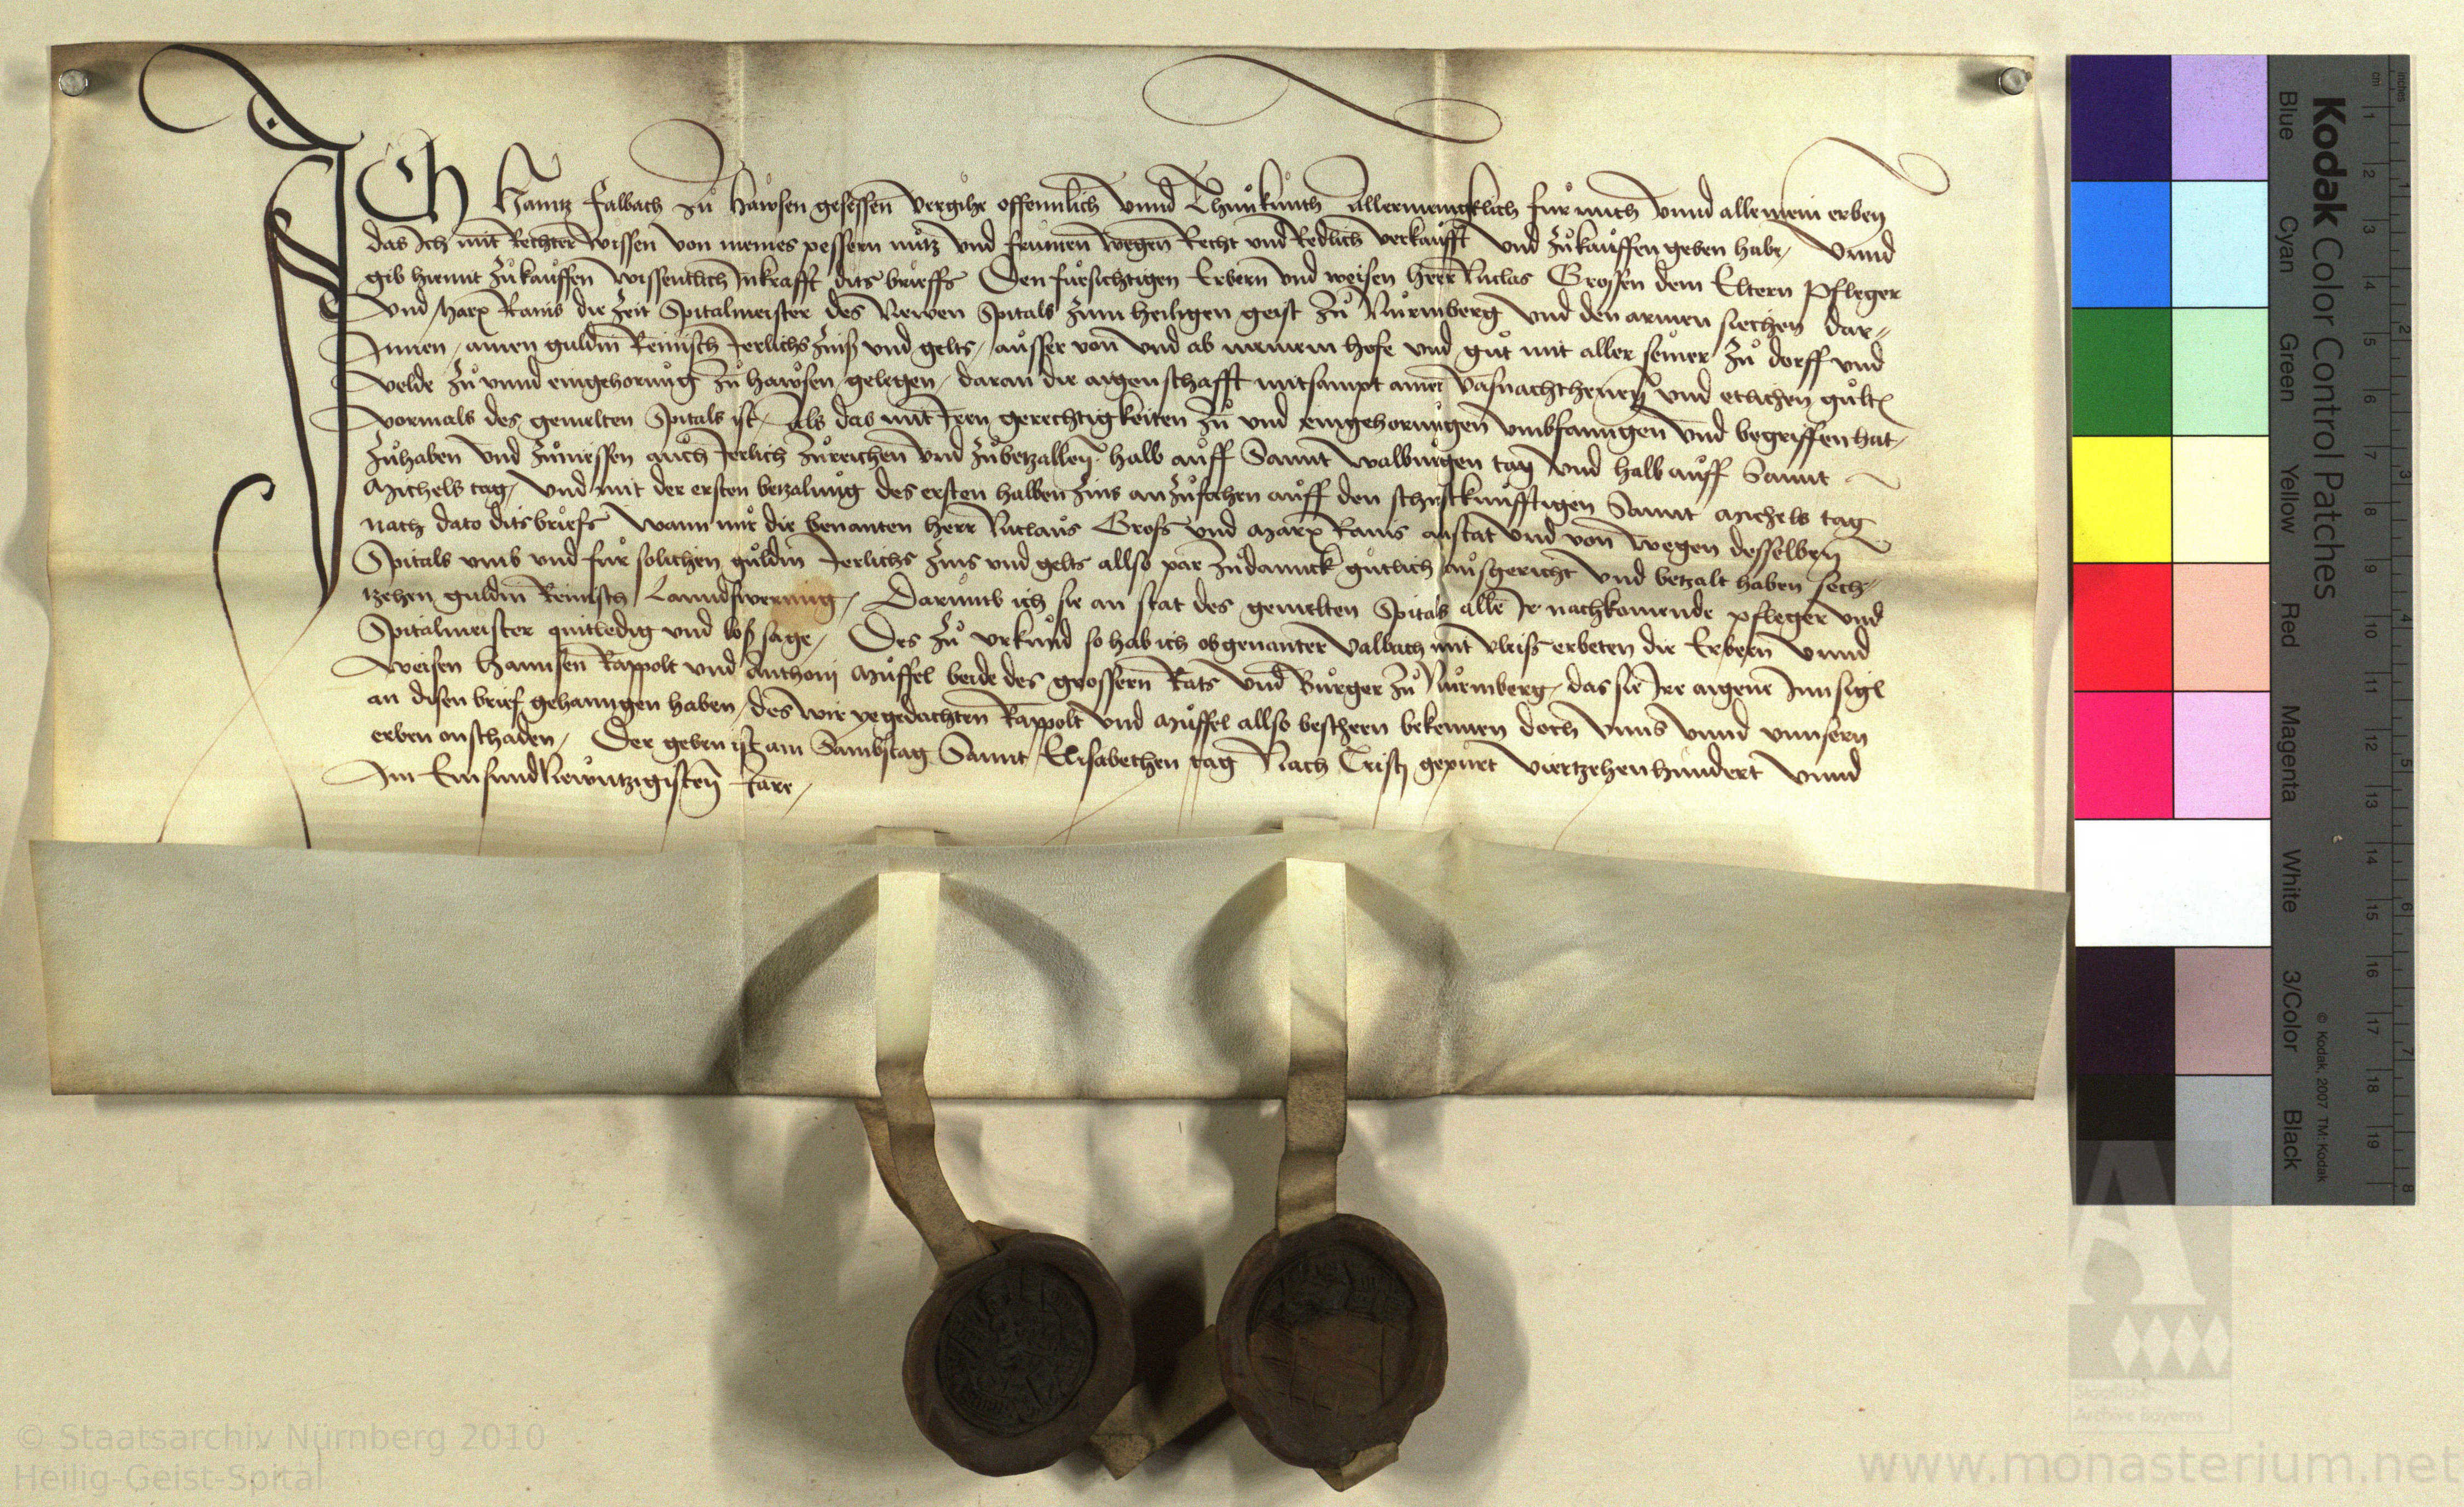 ICh Hanntz Falbach zů Hawsen gesessen vergihe offennlich unnd Thunkunth allermenigklich für mich unnd alle mein erben
das Ich mit Rechter wissen von meines pessern nutz und frumen wegen Recht und Redlich verkaufft und zůkauffen geben habe, Unnd
gib hiemit zůkauffen wissentlich Inkrafft dits briefs Den fürsichtigen Erbern und weisen herr Niclas Grossen dem Eltern Pfleger
und Marx Rauis die zeit Spitalmeister des Newen Spitals zum heiligen geist zů Nürmberg und den armen siechen dar-
Innen, ainen guldin Reinisch Jerlichs zinß und gelts, ausser von und ab meinem hofe und gut mit aller seiner zů dorff und
velde zů unnd eingehorung zů Hawsen gelegen, daran die aigenschafft mitsampt ainer vasnachthennen und etlichen gült
vormals des gemelten Spitals ist, Als das mit Iren gerechtigkeiten zů und eingehorungen umbfanngen und begriffen hat,
zůhaben und zůniessen auch Jerlich zůreichen und zůbetzallen halb auff Sannt Walburgen tag und halb auff Sannt
Michels tag, und mit der ersten betzalung des ersten halben zins anzůfahen auff den schirstkunfftigen Sannt Michels tag
nach dato dits briefs Wann mir die benanten herr Niclaus Gross und Marx Rauis anstat und von wegen desselben
Spitals umb und für solichen guldin Jerlichs zins und gelts allso par zů danck gütlich außgericht und betzalt haben sech-
tzehen guldin Reinisch Lanndßwerung, Darumb ich sie an stat des gemelten Spitals alle Ir nachkomende pfleger und
Spitalmeister quitledig und loß sage, Des zů urkund so hab ich obgenanter Valbach mit vleiß erbeten die Erbern unnd
Weisen Hannsen Rappolt und Anthonj Muffel beide des grossern Rats und Burger zů Nürmberg, das sie Ire aigene Innsigl
an disen brief gehanngen haben, des wir yegedachten Rappolt und Muffel allso bescheen bekennen doch unns unnd unnsern
erben onschaden, Der geben ist am Sambstag Sannt Elisabethen tag Nach Cristj gepurt Viertzehenhundert unnd
Im Einsundnewntzigisten Jare,
Kodak Color Control Patches
Blue Cyan Green Yellow Red Magenta White 3/Color Black
© Kodak, 2007 TM: Kodak
cm 1 2 3 4 5 6 7 8 9 10 11 12 13 14 15 16 17 18 19
inches 1 2 3 4 5 6 7 8
© Staatsarchiv Nürnberg 2010
Heilig-Geist-Spital
Staatliche Archive Bayerns
www.monasterium.net